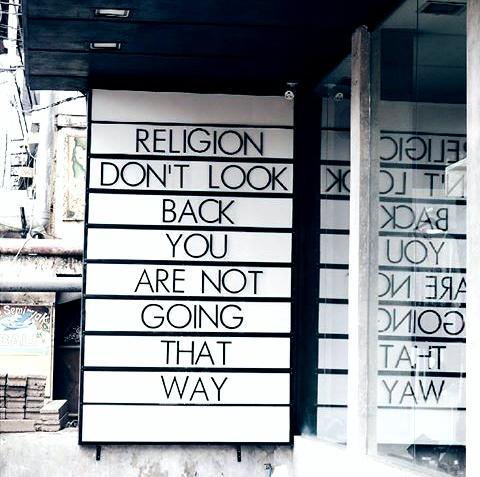 RELIGION
DON'T LOOK
BACK
YOU
ARE NOT
GOING
THAT
WAY
Semi-